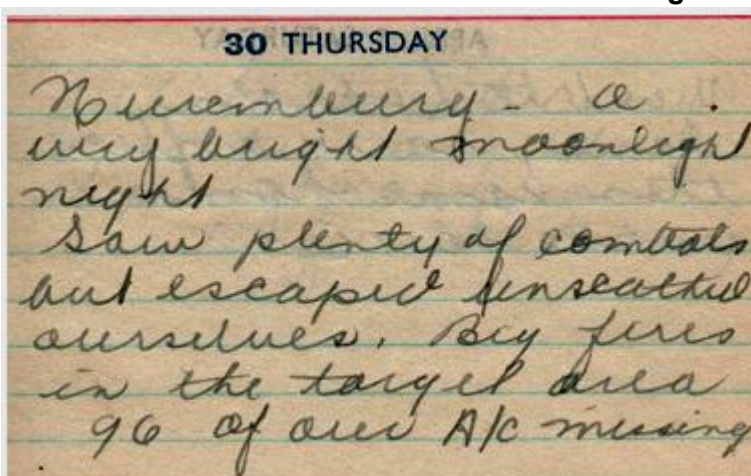 30 THURSDAY
Nuremburg - a
very bright moonligh
night
Saw plenty of combats
but escaped unscathed
ourselves. Big fires
in the target area
96 of our A/c missing